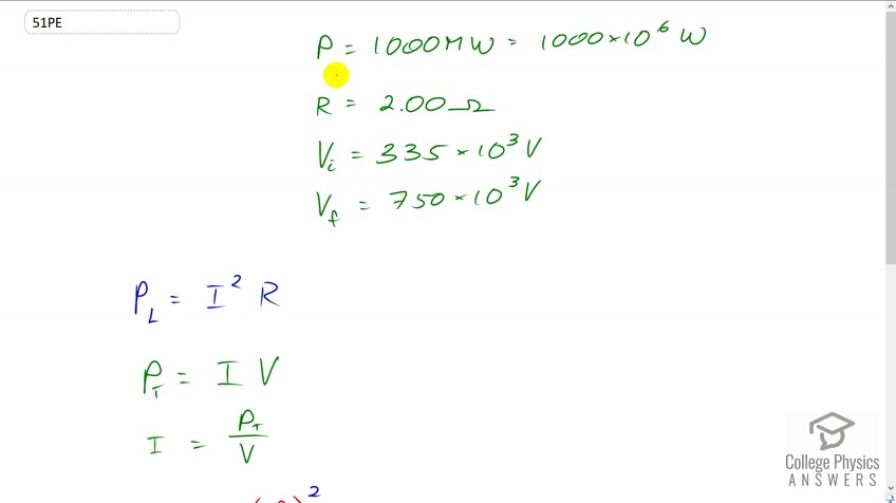 51PE
P = 1000MW = 1000×10⁶ W
R = 2.00Ω
Vᵢ = 335×10³ V
V_f = 750×10³ V
P_L = I² R
P_T = I V
I = P_T / V
2
College Physics
ANSWERS